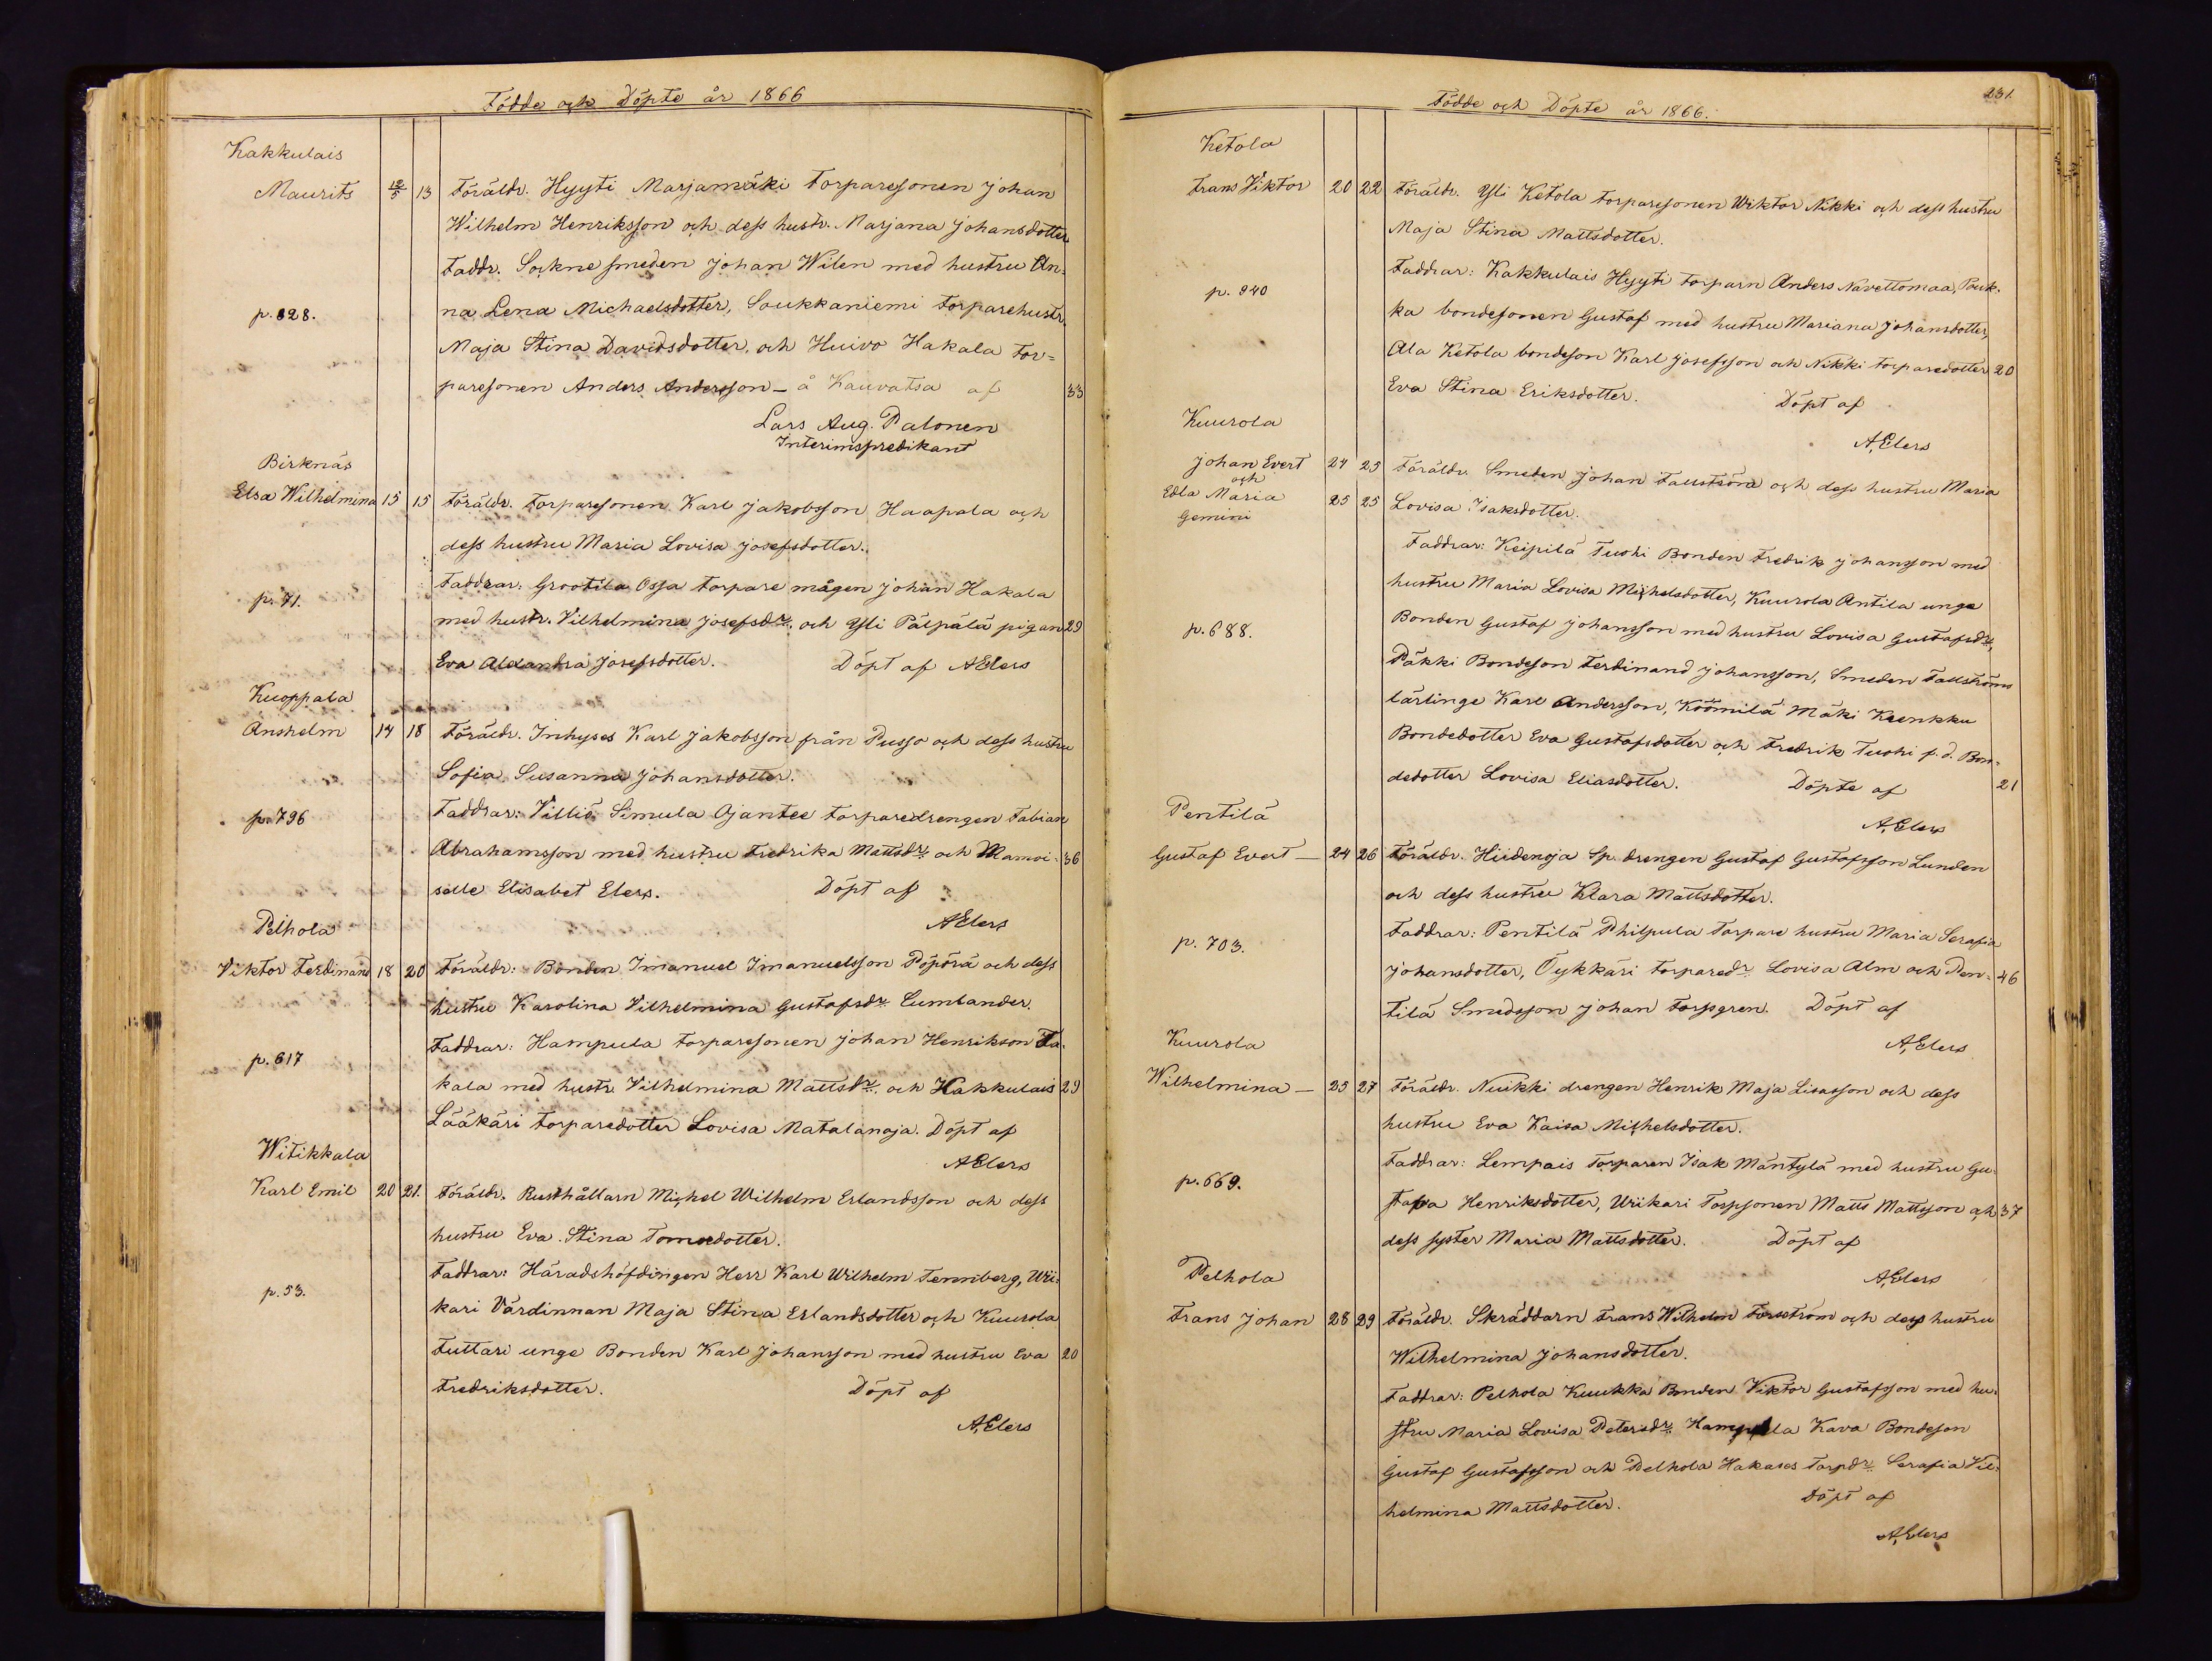 Födde och Döpte år 1866
Kakkulais
Maurits 12/5 13 Föräldr. Hyyti Marjamäki torparesonen Johan
Wilhelm Henriksson och dess hustr. Marjana Johansdotter
Faddr. Sockne smeden Johan Wilen med hustru An-
p. 828. na Lena Michaelsdotter, Soukkaniemi torparehustr.
Maja Stina Davidsdotter, och Huivo Hakala tor=
paresonen Anders Andersson – å Kauvatsa af 33
Lars Aug. Palonen
Interimspredikant
Birknäs
Elsa Wilhelmina 15 15 Föräldr. Torparesonen Karl Jakobsson Haapala och
dess hustru Maria Lovisa Josefsdotter.
p. 71. Faddrar: Grootila Ossa torpare mågen Johan Hakala
med hustr. Vilhelmina Josefsdr. och Yli Pälpälä pigan 29
Eva Alexandra Josefsdotter. Döpt af AElers
Kuoppala
Anshelm 14 18 Föräldr. Inhyses Karl Jakobsson från Pusso och dess hustru
Sofia Susanna Johansdotter.
p. 796 Faddrar: Villiö Simula Ojantee torparedrengen Fabian
Abrahamsson med hustru Fredrika Mattsdr. och Mamoi- 36
selle Elisabet Elers. Döpt af
AElers
Pelhola
Viktor Ferdinand 18 20 Föräldr: Bonden Imanuel Imanuelsson Pöpörä och dess
hustru Karolina Vilhelmina Gustafsdr. Cumlander.
p. 617 Faddrar: Hampula torparesonen Johan Henrikson Ta-
kala med hustr. Vilhelmina Mattsdr. och Kakkulais 29
Lääkäri torparedotter Lovisa Matalanoja. Döpt af
AElers
Witikkala
Karl Emil 20 21. Föräldr. Rusthållarn Michel Wilhelm Erlandsson och dess
hustru Eva Stina Tomasdotter.
p. 53. Faddrar: Häradshöfdingen Herr Karl Wilhelm Tennberg, Wii-
kari Värdinnan Maja Stina Erlandsdotter och Kuurola
Tuttari unge Bonden Karl Johansson med hustru Eva 20
Fredriksdotter. Döpt af
A,Elers
Födde och Döpte år 1866. 231.
Ketola
Frans Viktor 20 22 Föräldr. Yli Ketola torparesonen Wiktor Nikki och dess hustru
Maja Stina Mattsdotter.
p. 940 Faddrar: Kakkulais Hyyti torparn Anders Navettomaa, Pauk-
ka bondesonen Gustaf med hustru Mariana Johansdotter,
Ala Ketola bondeson Karl Josefsson och Nikki torparedotter 20
Eva Stina Eriksdotter. Döpt af
A,Elers
Kuurola
Johan Evert 24 25 Föräldr. Smeden Johan Fallström och dess hustru Maria
och
Edla Maria 25 25 Lovisa Isaksdotter.
Gemini
Faddrar: Keipilä Tuohi Bonden Fredrik Johansson med
hustru Maria Lovisa Michelsdotter, Kuurola Antila unge
p. 688. Bonden Gustaf Johansson med hustru Lovisa Gustafsdr.,
Päkki Bondeson Ferdinand Johansson, Smeden Fallströms
lärlinge Karl Andersson, Köömilä Mäki Kenkku
Bondedotter Eva Gustafsdotter och Fredrik Tuohi f.d. Bon-
dedotter Lovisa Eliasdotter. Döpte af 21
A,Elers
Pentilä
Gustaf Evert – 24 26 Föräldr. Hiidenoja Sp. drengen Gustaf Gustafsson Lunden
och dess hustru Klara Mattsdotter.
p. 703. Faddrar: Pentilä Philpula Torpare hustru Maria Serafia
Johansdotter, Öykkäri torparedr. Lovisa Alm och Pen- 46
tilä Smedsson Johan Forsgren. Döpt af
A,Elers
Kuurola
Wilhelmina – 25 27 Föräldr. Nuikki drengen Henrik Maja Lisasson och dess
hustru Eva Kaisa Michelsdotter.
p. 669. Faddrar: Lempais torparen Isak Mäntylä med hustru Gu-
stafva Henriksdotter, Wiikari Torpsonen Matts Mattsson och 37
dess syster Maria Mattsdotter. Döpt af
A,Elers
Pelhola
Frans Johan 28 29 Föräldr. Skräddarn Frans Wilhelm Forsström och dess hustru
Wilhelmina Johansdotter.
Faddrar: Pelhola Kuukka Bonden Viktor Gustafsson med hu-
stru Maria Lovisa Petersdr. Hampula Kava Bondeson
Gustaf Gustafsson och Pelhola Hakases Torpdr. Serafia Vil-
helmina Mattsdotter. Döpt af
A,Elers